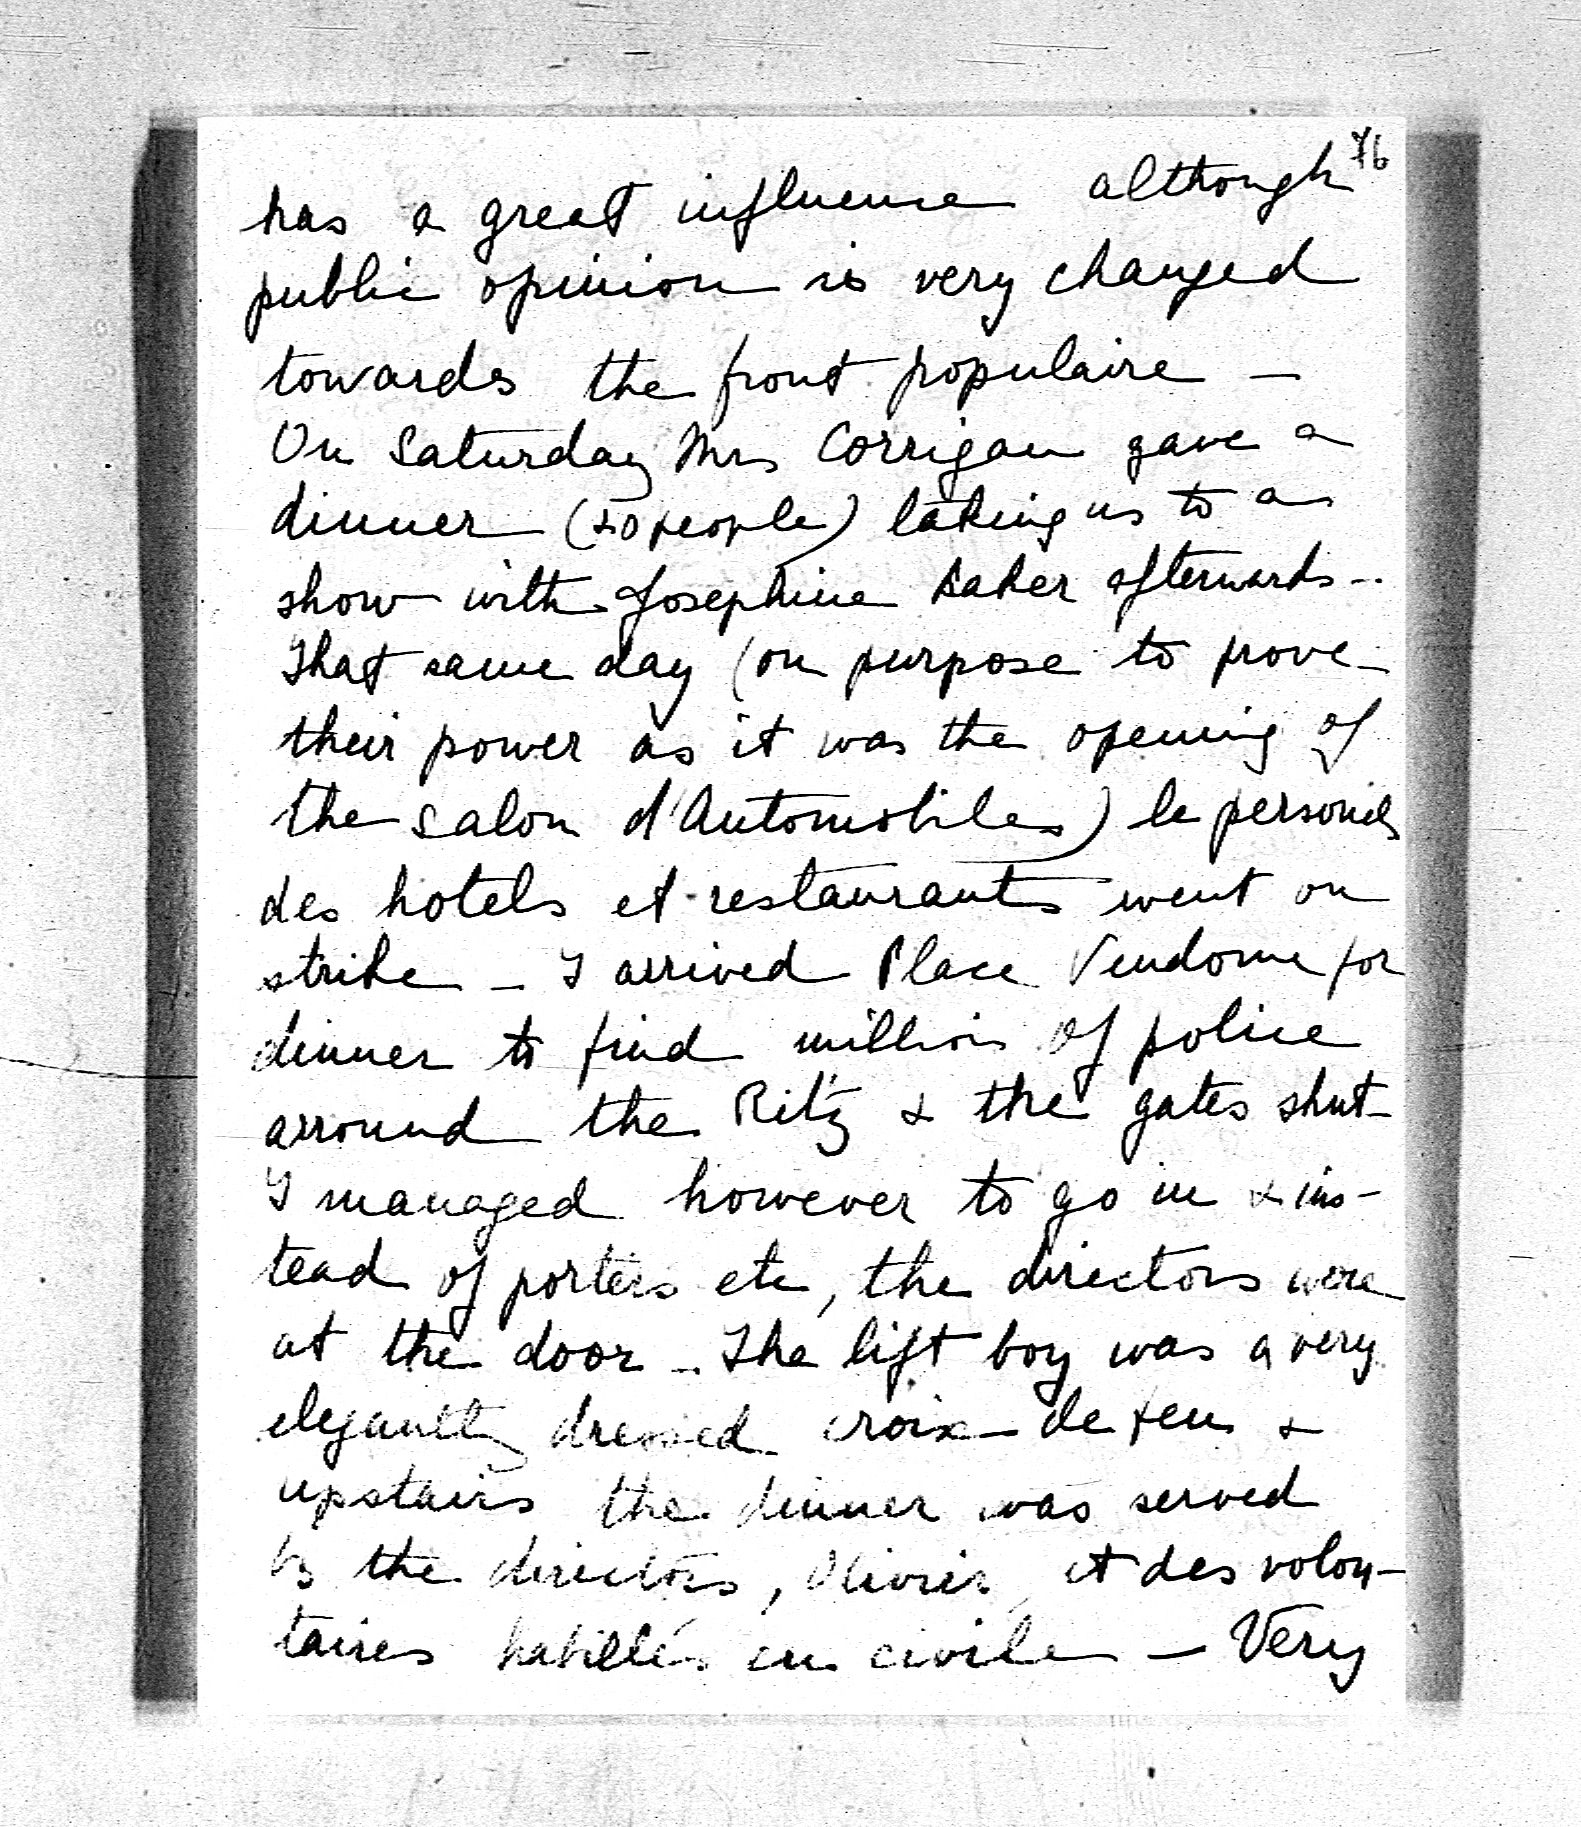 76
has a great influence although
public opinion is very changed
towards the front populaire –
On Saturday Mrs Corrigan gave a
dinner (20 people) taking us to a
show with Josephine Baker afterwards –
That same day (on purpose to prove
their power as it was the opening of
the salon d'Automobiles) le personel
des hotels et restaurants went on
strike – I arrived Place Vendome for
dinner to find million of police
arround the Ritz & the gates shut –
I managed however to go in & ins-
tead of porters etc, the directors were
at the door – The lift boy was a very
elegantly dressed croix de feu &
upstairs the dinner was served
by the directors, Olivier, et des volon-
taires habillés en civile – Very